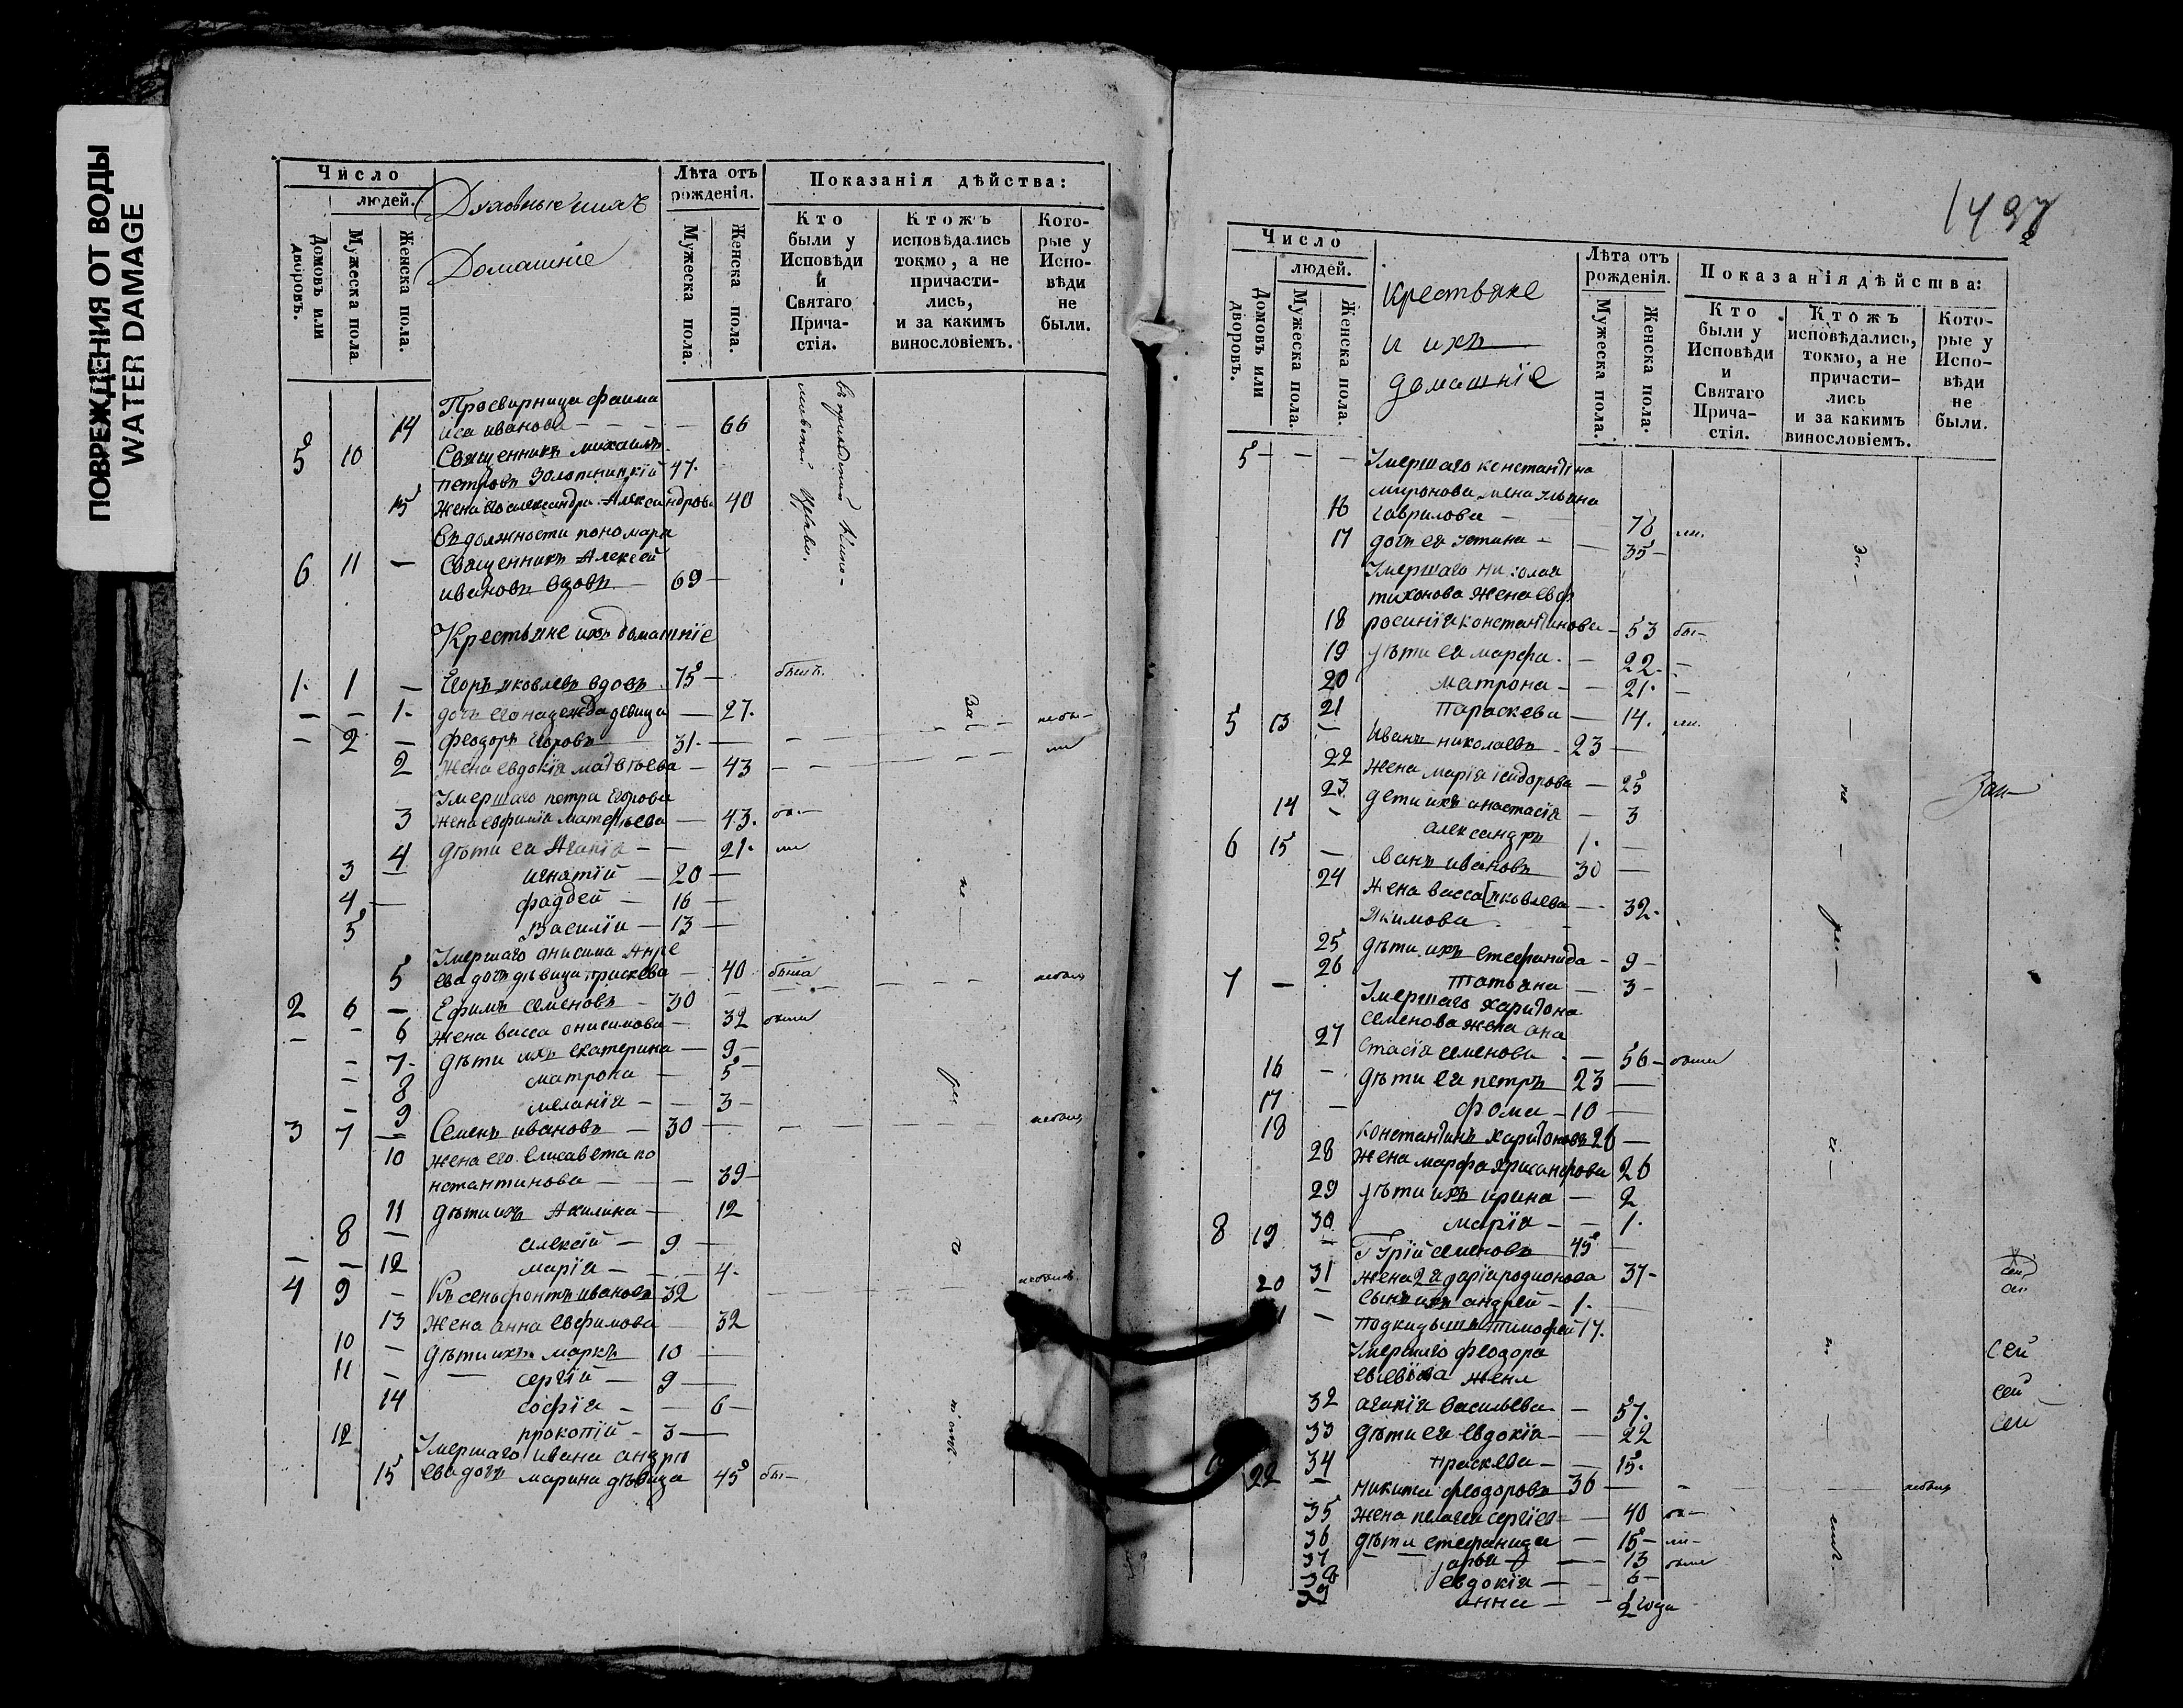 ПОВРЕЖДЕНИЯ ОТ ВОДЫ
WATER DAMAGE
Число
людей.
Домовъ или дворовъ.
Мужеска пола
Женска пола.
Духовные ихъ
Домашніе
Лѣта отъ рожденія.
Мужеска пола.
Женска пола.
Показанія дѣйства:
Кто были у Исповѣди и Святаго Прича-стія.
Ктожъ исповѣдались токмо, а не причасти-лись, и за какимъ винословіемъ.
Кото-рые у Испо-вѣди не были.
Просвирница
14 иса иванова — 66
5 10 Священникъ михаилъ
петровъ Золотницкій 47.
15 жена его александра Александрова 40
въ должности пономаря
6 11 — Священникъ Алексей
ивановъ вдовъ — 69 —
Крестьяне ихъ домашніе
1. 1 — Егоръ яковлевъ вдовъ 75 —
— — 1. дочь его надежда девица — 27.
— 2 — феодоръ Егоровъ 31. —
2 жена евдокія матвѣева — 43
Умершаго петра Егорова
3 жена евфимія матфѣева — 43.
4 дѣти ея Агапія — — 21.
3 — игнатій — 20 —
4 — фаддей — 16 —
5 Василій — 13 —
Умершаго анисима Андре
5 ева дочь дѣвица праскева — 40
2 6 — Ефимъ семеновъ 30 —
— — 6 жена васса онисимова — 32
— 7. дѣти ихъ екатерина — 9 —
— 8 матрона — 5 —
— 9 меланія — — 3 —
3 7 — Семенъ ивановъ — 30 —
10 жена его елисавета ко
нстантинова — — 39 —
11 дѣти ихъ Акилина — 12
8 — алексій — 9 —
— — 12 марія — — 4.
4 9 — Ксенофонтъ ивановъ 32
13 жена анна евфимова — 32
10 — дѣти ихъ маркъ 10 —
11 — сергій — 9 —
14 софія — — 6 —
12 прокопій — 3 —
Умершаго ивана андре
15 ева дочь марина дѣвица 45
1497
Число
людей.
Домовъ или дворовъ.
Мужеска пола.
Женска пола.
крестьяне
и ихъ
домашніе
Лѣта отъ рожденія.
Мужеска пола.
Женска пола.
Показанія дѣйства:
Кто были у Исповѣди и Святаго Прича-стія.
Ктожъ исповѣдались, токмо, а не причасти-лись и за какимъ винословіемъ.
Кото-рые у Испо-вѣди не были.
5 — — — Умершаго константина
миронова жена ульяна
16 гаврилова — 76
17 дочь ея устина — — 35 —
Умершаго николая
тихонова жена евф
18 росинія константинова — 53
19 дѣти ея марфа. — 22. —
20 матрона — — 21. —
21 параскева — 14.
5 13 — Иванъ николаевъ — 23 —
22 жена марія исидорова — 25
23 дети ихъ анастасія — 3
14 — александръ 1. —
6 15 — иванъ ивановъ 30 —
24 жена васса яковлева — 32.
Якимова
25 дѣти ихъ стефанида — 9 —
26 татьяна — 3 —
7 — Умершаго харитона
семенова жена ана
27 стасія семенова — 56 —
16 — дѣти ея петръ 23 —
17 — фома — 10 —
18 константинъ харитоновъ 26 —
28 жена марфа хрисанфова 26
29 дѣти ихъ ирина — 2
30 марія — — 1.
8 19 — Гурій семеновъ 45 —
31 жена 2я дарія родионова 37 —
20 — сынъ ихъ андрей — 1. —
— подкидышъ тимофей 17.
Умершаго феодора
жена
32 агапія васильева — 57.
33 дѣти ея евдокія — — 22
34 праскева — — 15.
22 — никита феодоровъ 36 —
35 жена пелагея сергіева — 40
36 дѣти стефанида — 15 —
37 — 13
38 евдокія — 6 —
39 анна — — 2 года